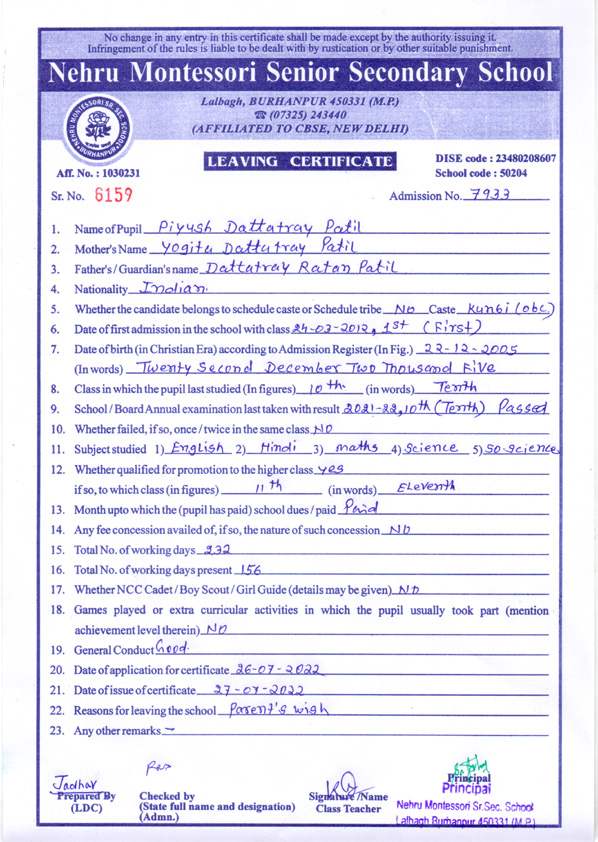 No change in any entry in this certificate shall be made except by the authority issuing it.
Infringement of the rules is liable to be dealt with by rustication or by other suitable punishment.
Nehru Montessori Senior Secondary School
Lalbagh, BURHANPUR 450331 (M.P.)
☎ (07325) 243440
(AFFILIATED TO CBSE, NEW DELHI)
NEHRU MONTESSORI SR. SEC. SCHOOL
BURHANPUR
LEAVING CERTIFICATE
DISE code : 23480208607
Aff. No. : 1030231
School code : 50204
Sr. No. 6159
Admission No. 7933
1. Name of Pupil Piyush Dattatray Patil
2. Mother's Name Yogita Dattatray Patil
3. Father's / Guardian's name Dattatray Ratan Patil
4. Nationality Indian.
5. Whether the candidate belongs to schedule caste or Schedule tribe No Caste Kunbi (obc)
6. Date of first admission in the school with class 24-03-2012, 1st (First)
7. Date of birth (in Christian Era) according to Admission Register (In Fig.) 22-12-2005
(In words) Twenty Second December Two Thousand Five
8. Class in which the pupil last studied (In figures) 10th. (in words) Tenth
9. School / Board Annual examination last taken with result 2021-22, 10th (Tenth) Passed
10. Whether failed, if so, once / twice in the same class No
11. Subject studied 1) English 2) Hindi 3) maths 4) Science 5) So.science
12. Whether qualified for promotion to the higher class yes
if so, to which class (in figures) 11th (in words) Eleventh
13. Month upto which the (pupil has paid) school dues / paid Paid
14. Any fee concession availed of, if so, the nature of such concession No
15. Total No. of working days 232
16. Total No. of working days present 156
17. Whether NCC Cadet / Boy Scout / Girl Guide (details may be given) No
18. Games played or extra curricular activities in which the pupil usually took part (mention
achievement level therein) No
19. General Conduct Good.
20. Date of application for certificate 26-07-2022
21. Date of issue of certificate 27-07-2022
22. Reasons for leaving the school Parent's wish
23. Any other remarks –
Jadhav
Prepared By
(LDC)
Checked by
(State full name and designation)
(Admn.)
Signature /Name
Class Teacher
Principal
Principal
Nehru Montessori Sr.Sec. School
Lalbagh Burhanpur 450331 (M.P.)